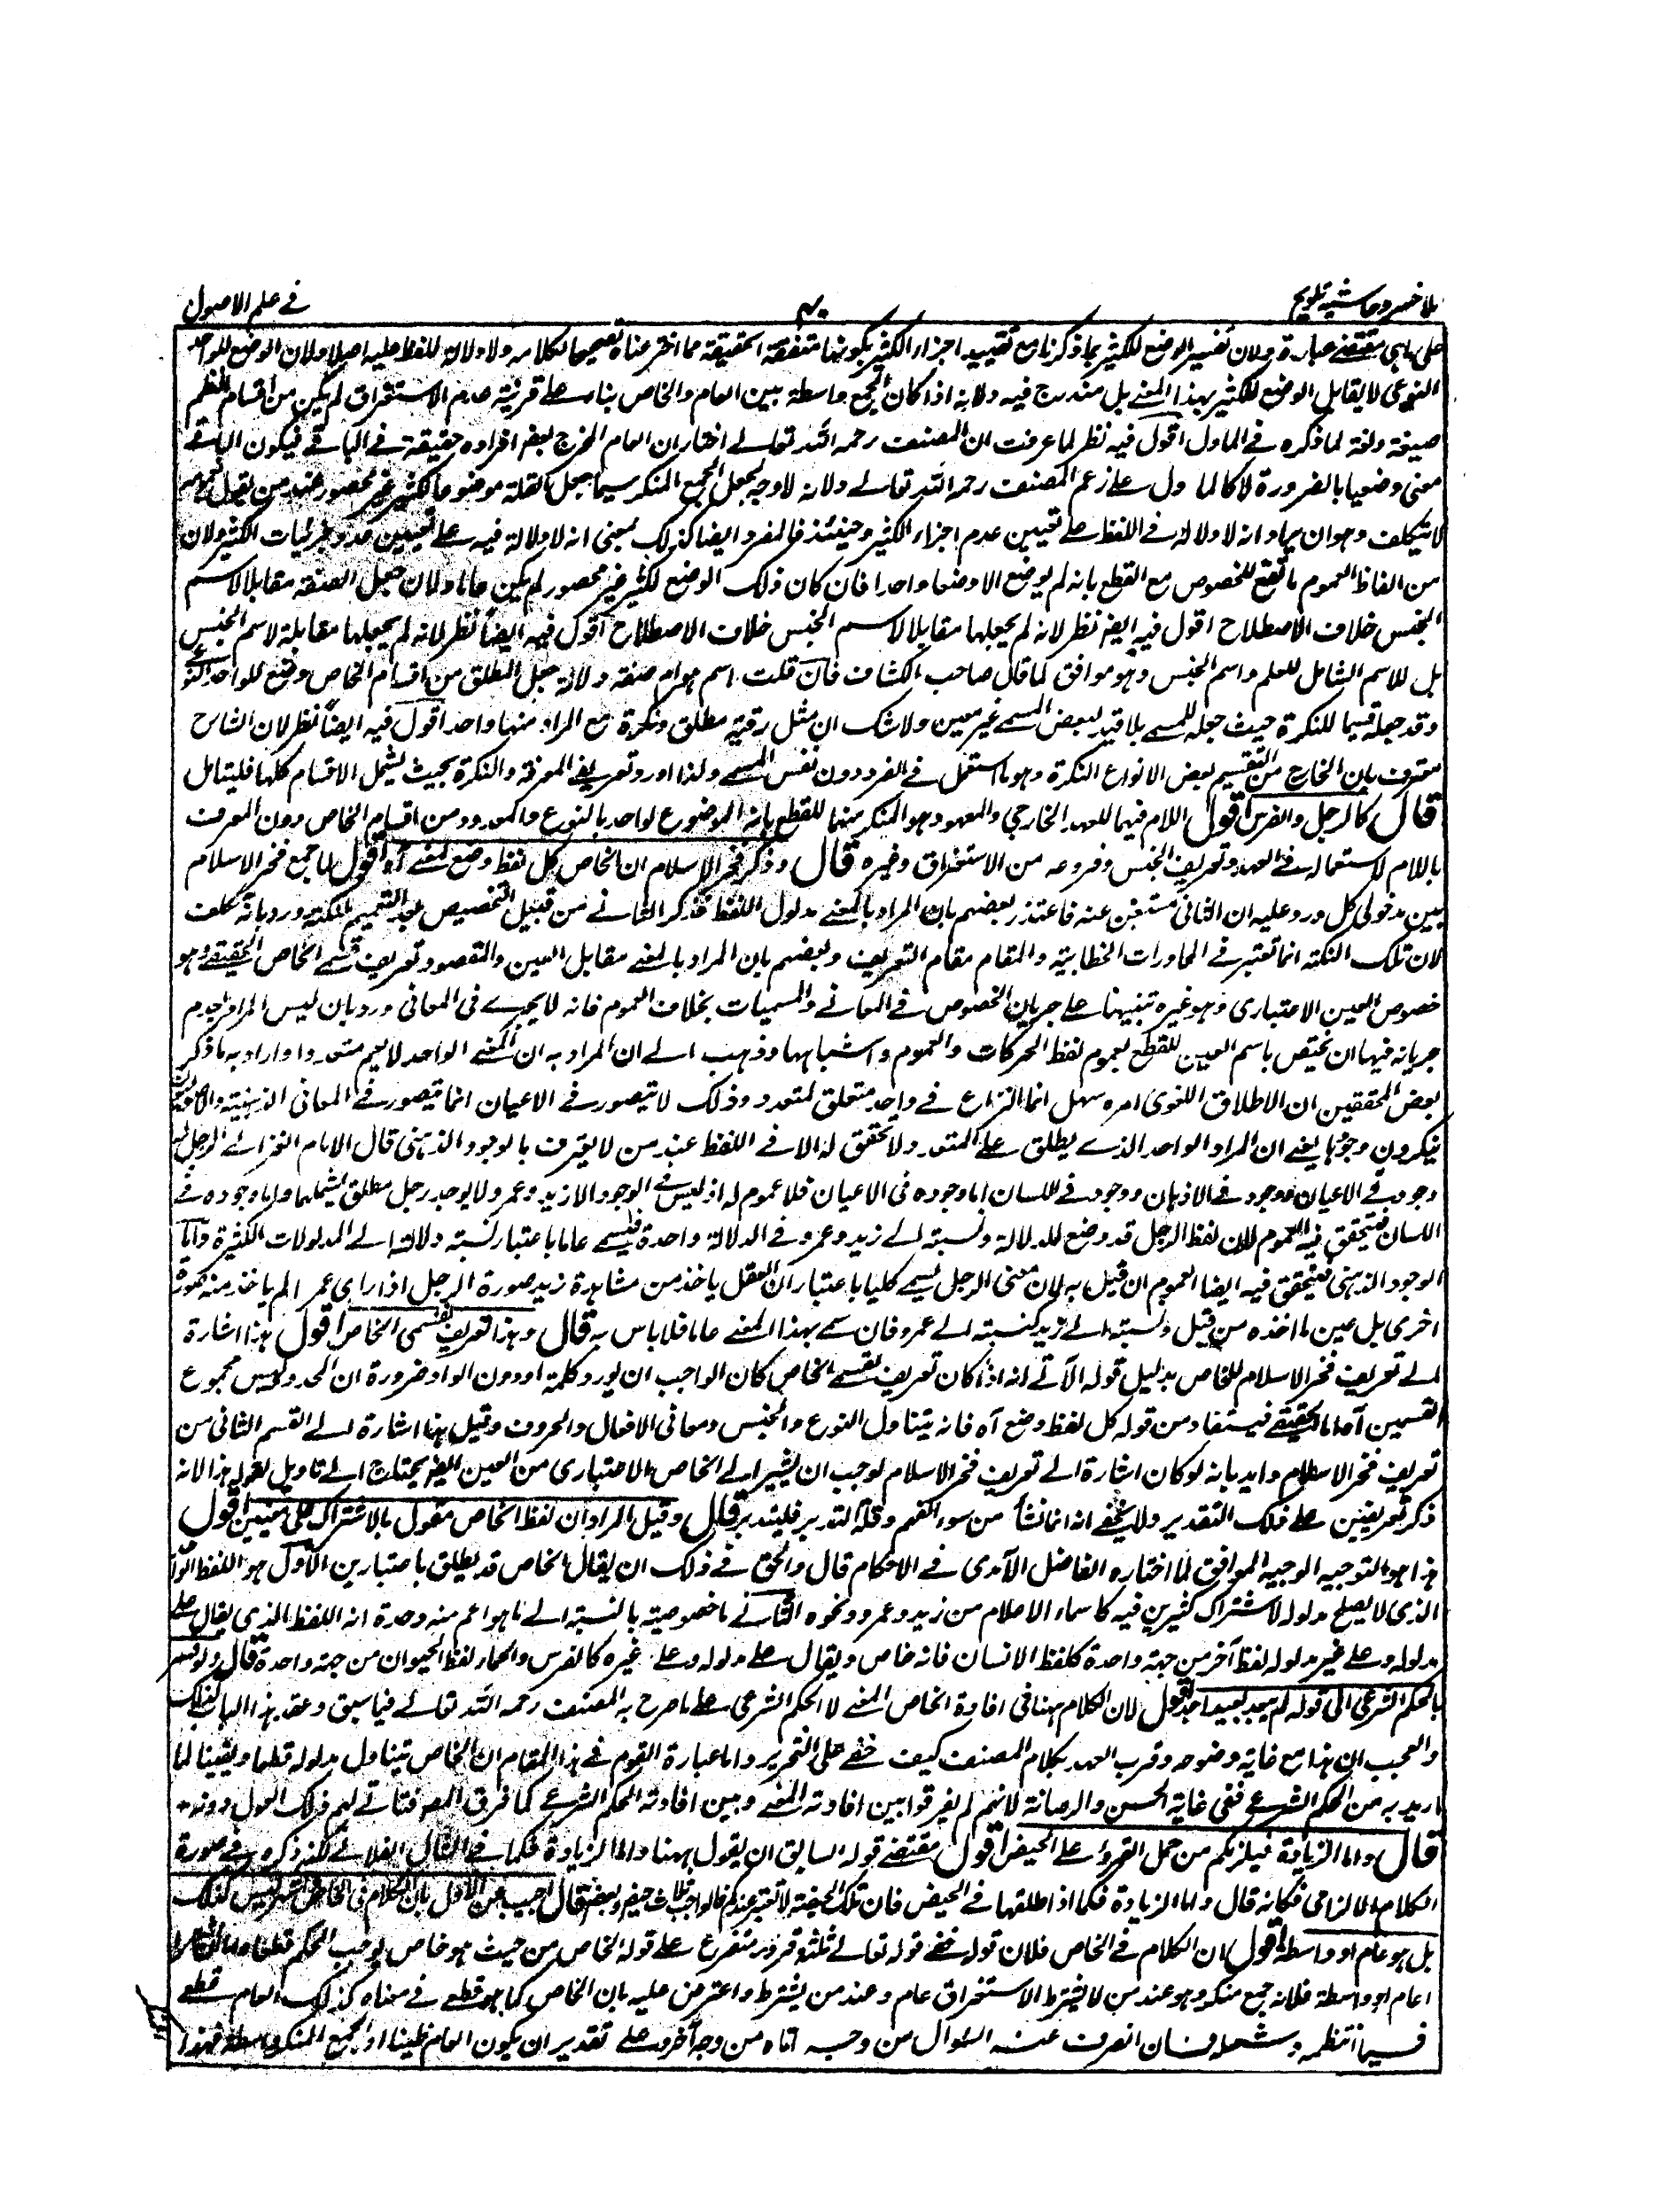 ملا خسرو حاشية تلويح
في علم الاصول
على ما هي مقتضى عبارته ولان تفسير الوضع للكثير بما ذكرنا مع تقييد اجزاء الكثير بكونها متفقة الحقيقة مما اخترعناه تصحيحا لكلامه ولا دلالة للفظ عليه اصلا ولان الوضع للواحد
النوعي لا يقابل الوضع للكثير بهذا المعنى بل مندرج فيه ولانه اذا كان الجمع واسطة بين العام والخاص بناء على قرينة عدم الاستغراق لم يكن من اقسام النظم
صيغة ولغة لما ذكره في الماول اقول فيه نظر لما عرفت ان المصنف رحمه الله تعالى اختار ان العام المخرج بعض افراده حقيقة في الباقي فيكون الباقي
معنى وضعيا بالضرورة لا كالماول على زعم المصنف رحمه الله تعالى ولانه لا وجه لجعل الجمع المنكر سيما جمع القلة موضوعا لكثير غير محصور عند من يقول
لا تتكلف وهو ان يراد انه لا دلالة في اللفظ على تعيين عدم اجزاء الكثير وحينئذ فالمفرد ايضا كذلك بمعنى انه لا دلالة فيه على تعيين عدد جزئيات الكثير ولان
من الفاظ العموم ما تقع للخصوص مع القطع بانه لم يوضع الا وضعا واحدا فان كان ذلك الوضع لكثير غير محصور لم يكن عاما ولان جعل الصفة مقابلا لاسم
الجنس خلاف الاصطلاح اقول فيه ايضا نظر لانه لم يجعلها مقابلا لاسم الجنس خلاف الاصطلاح اقول فيه ايضا نظر لانه لم يجعلها مقابلة لاسم الجنس
بل للاسم الشامل للعلم واسم الجنس وهو موافق لما قال صاحب الكشاف فان قلت اسم هو ام صفة ولانه جعل المطلق من اقسام الخاص وضع للواحد النوعي
وقد جعله قسيما للنكرة حيث جعله للمسمى بلا قيد لبعض المسمى غير معين ولا شك ان مثل رقبة مطلق ونكرة مع المراد منها واحد اقول فيه ايضا نظر لان الشارح
معترف بان الخارج من التقسيم بعض الانواع النكرة وهو ما استعمل في الفرد دون نفس المسمى ولذا اورد تعريفي المعرفة والنكرة بحيث يشمل الاقسام كلها فليتامل
قال كالرجل والفرس اقول اللام فيهما للعهد الخارجي والمعهود هو المنكر منهما للقطع بانه الموضوع لواحد بالنوع والمعدود من اقسام الخاص دون المعرف
باللام لاستعماله في العهد وتعريف الجنس وفروعه من الاستغراق وغيره قال وذكر فخر الاسلام ان الخاص كل لفظ وضع لمعنى آه اقول لما جمع فخر الاسلام
بين مدخولي كل ورد عليه ان الثاني مستغن عنه فاعتذر بعضهم بان المراد بالمعنى مدلول اللفظ فذكر الثاني من قبيل التخصيص بعد التعميم لنكتة ورد بانه تكلف
لان تلك النكتة انما تعتبر في المحاورات الخطابية والمقام مقام التعريف وبعضهم بان المراد بالمعنى مقابل العين والمقصود تعريف قسمي الخاص الحقيقي وهو
خصوص العين الاعتباري وهو غيره تنبيها على جريان الخصوص في المعاني والمسميات بخلاف العموم فانه لا يجري في المعاني ورد بان ليس المراد بعدم
جريانه فيها ان يختص باسم العين للقطع بعموم لفظ الحركات والعموم واشباهها وذهب الى ان المراد به ان المعنى الواحد لا يعم متعددا واراد به ما ذكر
بعض المحققين ان الاطلاق اللغوي امره سهل انما النزاع في واحد متعلق لمتعدد وذلك لا يتصور في الاعيان انما يتصور في المعاني الذهنية والاصوليون
ينكرون وجودها يعني ان المراد الواحد الذي يطلق على المتعدد ولا تحقق له الا في اللفظ عند من لا يعترف بالوجود الذهني قال الامام الغزالي الرجل له
وجود في الاعيان ووجود في الاذهان ووجود في اللسان اما وجوده في الاعيان فلا عموم له اذ ليس في الوجود الا زيد وعمرو ولا يوجد رجل مطلق يشملهما واما وجوده في
اللسان فيتحقق فيه العموم لان لفظ الرجل قد وضع للدلالة ونسبته الى زيد وعمرو في الدلالة واحدة فيسمى عاما باعتبار نسبة دلالته الى المدلولات الكثيرة واما
الوجود الذهني فيتحقق فيه ايضا العموم ان قيل به لان معنى الرجل يسمى كليا باعتبار ان العقل ياخذ من مشاهدة زيد صورة الرجل اذا راى عمرا لم ياخذ منه صورة
اخرى بل عين ما اخذه من قبل ونسبته الى زيد كنسبته الى عمرو فان سمي بهذا المعنى عاما فلا باس به قال وهذا تعريف لقسمي الخاص اقول هذا اشارة
الى تعريف فخر الاسلام للخاص بدليل قوله الآتي انه اذا كان تعريف لقسمي الخاص كان الواجب ان يورد كلمة او دون الواو ضرورة ان المحدود ليس مجموع
القسمين آه اما الحقيقي فيستفاد من قوله كل لفظ وضع آه فانه يتناول النوع والجنس ومعاني الافعال والحروف وقيل هذا اشارة الى القسم الثاني من
تعريف فخر الاسلام وايد بانه لو كان اشارة الى تعريف فخر الاسلام لوجب ان يشير الى الخاص الاعتباري من العين ايضا يحتاج الى تاويل لقوله هذا لانه
ذكر تعريفين على ذلك التقدير ولا يخفى انه انما نشأ من سوء الفهم وقلة التدبر فليتدبر قال وقيل المراد ان لفظ الخاص مقول بالاشتراك على معنيين اقول
هذا هو التوجيه الوجيه الموافق لما اختاره الفاضل الآمدي في الاحكام قال والحق في ذلك ان يقال الخاص قد يطلق باعتبارين الاول هو اللفظ الواحد
الذي لا يصلح مدلوله لاشتراك كثيرين فيه كاسماء الاعلام من زيد وعمرو ونحوه الثاني ما خصوصيته بالنسبة الى ما هو اعم منه وحده انه اللفظ الذي يقال على
مدلوله وعلى غير مدلوله لفظ آخر من جهة واحدة كلفظ الانسان فانه خاص ويقال على مدلوله وعلى غيره كالفرس والحمار لفظ الحيوان من جهة واحدة قال ولو فسر
بالحكم الشرعي الى قوله لم يبعد بعيدا جدا اقول لان الكلام ههنا في افادة الخاص المعنى لا الحكم الشرعي على ما صرح به المصنف رحمه الله تعالى فيما سبق وعقد هذا الباب لذلك
والعجب ان هذا مع غاية وضوحه وقرب العهد بكلام المصنف كيف خفي على التحرير واما عبارة القوم في هذا المقام ان الخاص يتناول مدلوله قطعا ويقينا لما
اريد به من الحكم الشرعي ففي غاية الحسن والرصانة لانهم لم يفرقوا بين افادته المعنى وبين افادته الحكم الشرعي كما فرق المصنف فتأتى لهم ذلك القول دونه
قال واما الزيادة فيلزمكم من حمل القروء على الحيض اقول مقتضى قوله السابق ان يقول ههنا واما الزيادة فكما في المثال الفلاني لكنه ذكره في صورة
الكلام الالزامي فكانه قال واما الزيادة فكما اذا اطلقها في الحيض فان تلك الحيضة لا تعتبر عندكم فالواجب ثلاث حيض وبعض قال اجيب عن الاول بان الكلام في الخاص اشهر ليس كذلك
بل هو عام او واسطة اقول ان الكلام في الخاص فلان قوله ففي قوله تعالى ثلثة قروء متفرع على قوله الخاص من حيث هو خاص يوجب الحكم قطعا
عام او واسطة فلانه جمع منكر وهو عند من لا يشترط الاستغراق عام وعند من يشترط واعترض عليه بان الخاص كما هو قطعي في معناه كذلك العام قطعي
فيما انتظمه وشمله فان انصرف عنه السؤال من وجه اتاه من وجه آخر وعلى تقدير ان يكون العام ظنيا او الجمع المنكر واسطة فهذا